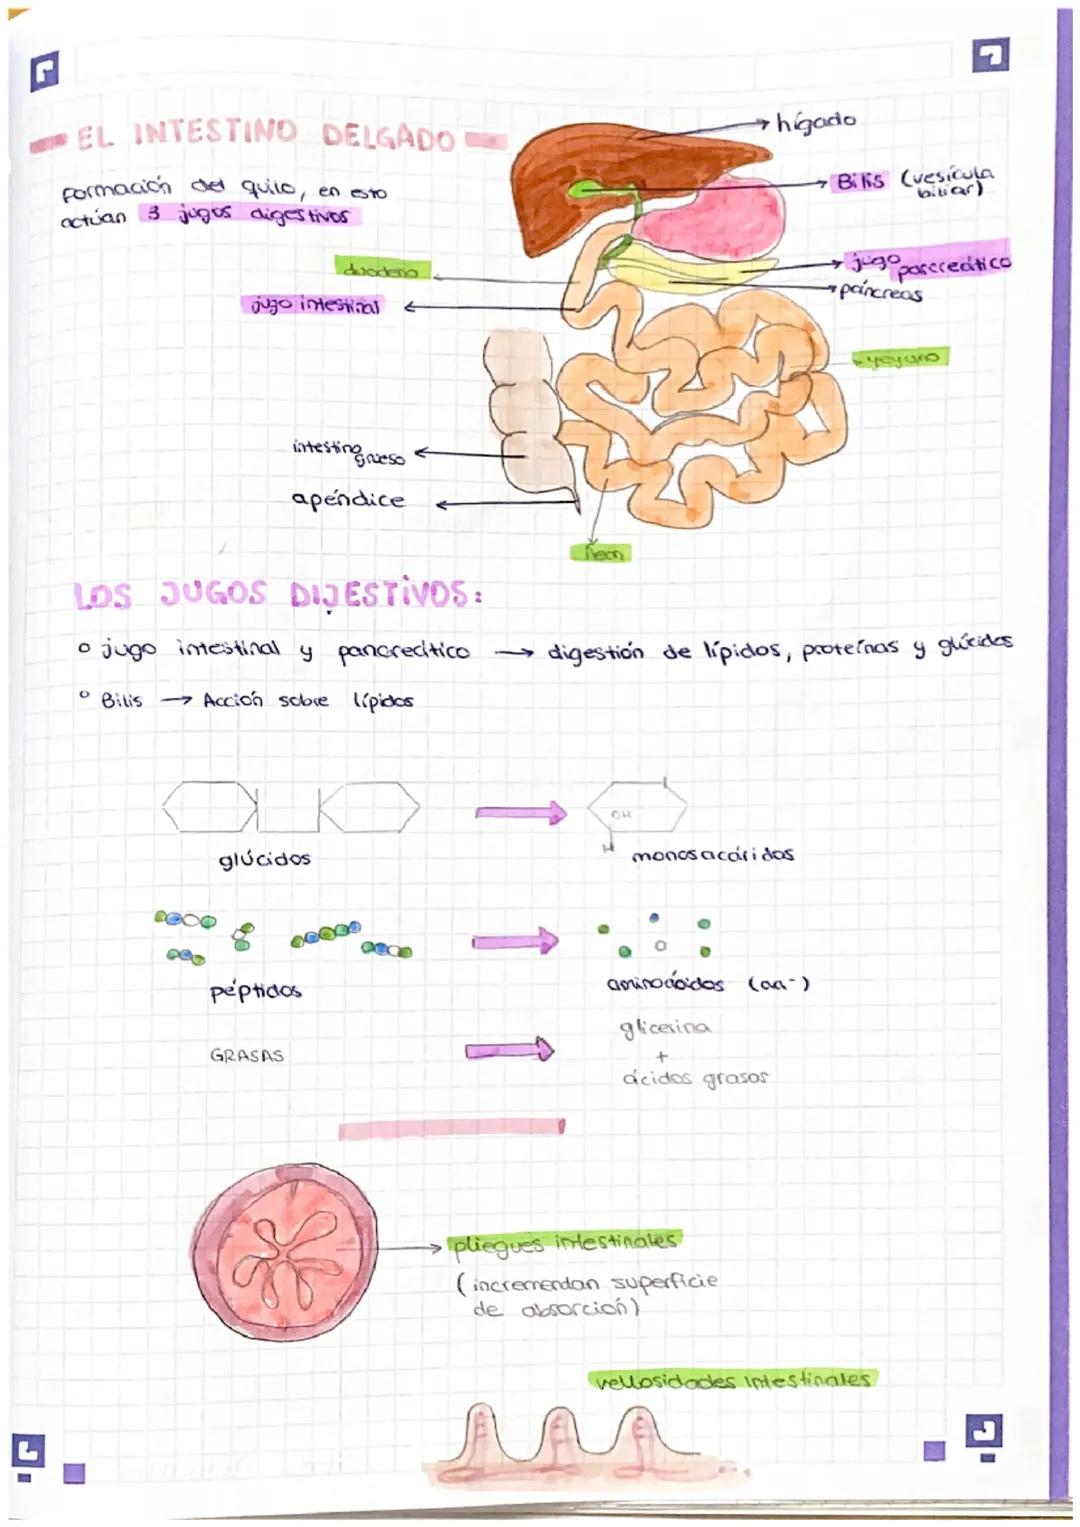 EL INTESTINO DELGADO
Formación del quilo, en esto
actúan 3 jugos digestivos
hígado
Bilis (vesícula
biliar)
duodeno
jugo
pascreático
páncreas
jugo intestinal
yeyuno
intestino
grueso
apéndice
íleon
LOS JUGOS DIJESTIVOS:
jugo intestinal y pancreático → digestión de lípidos, proteínas y glúcidos
Bilis → Acción sobre lípidos
OH
H
glúcidos
monosacáridos
péptidos
aminoácidos (aa-)
glicerina
GRASAS
+
ácidos grasos
pliegues intestinales
(incrementan superficie
de absorción)
vellosidades intestinales